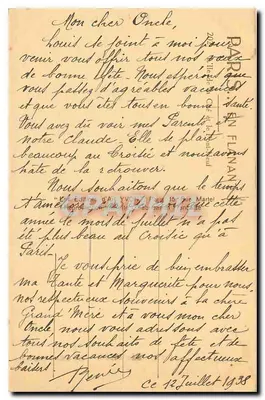 Mon cher Oncle,
Louis se joint à moi pour
venir vous offrir tous nos vœux
de bonne fête. Nous espérons que
vous passez d'agréables vacances
et que vous êtes tous en bonne santé
Vous avez dû voir mes Parents
notre Claude. Elle se plaît
beaucoup au Croisic et nous avons
hâte de la retrouver.
Nous souhaitons que le temps
cette
année le mois de juillet n'a pas
été plus beau au Croisic qu'à
Paris.
Je vous prie de bien embrasser
ma Tante et Marguerite pour nous,
nos respectueux souvenirs à la chère
Grand Mère et à vous mon cher
Oncle nous vous adressons avec
tous nos souhaits de fête et de
bonnes vacances nos affectueux
baisers.
Renée
Ce 12 Juillet 1938
PARIS EN FLANANT